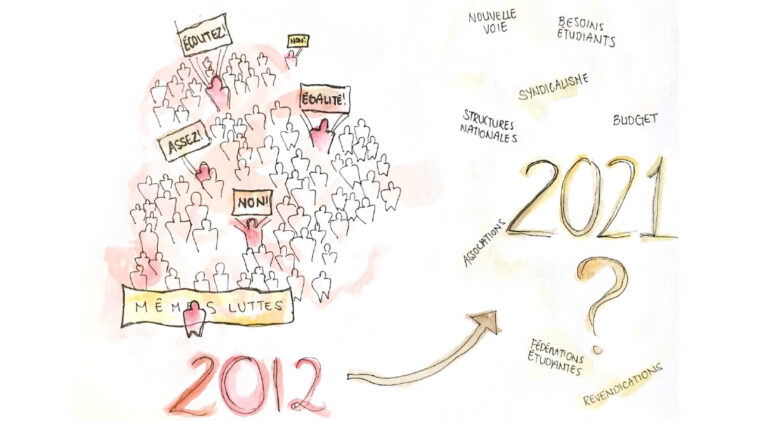 ÉCOUTEZ!
NON!
ÉGALITÉ!
ASSEZ!
NON!
MÊMES LUTTES
2012
NOUVELLE
VOIE
BESOINS
ÉTUDIANTS
SYNDICALISME
STRUCTURES
NATIONALES
BUDGET
2021
ASSOCIATIONS
?
FÉDÉRATIONS
ÉTUDIANTES
REVENDICATIONS